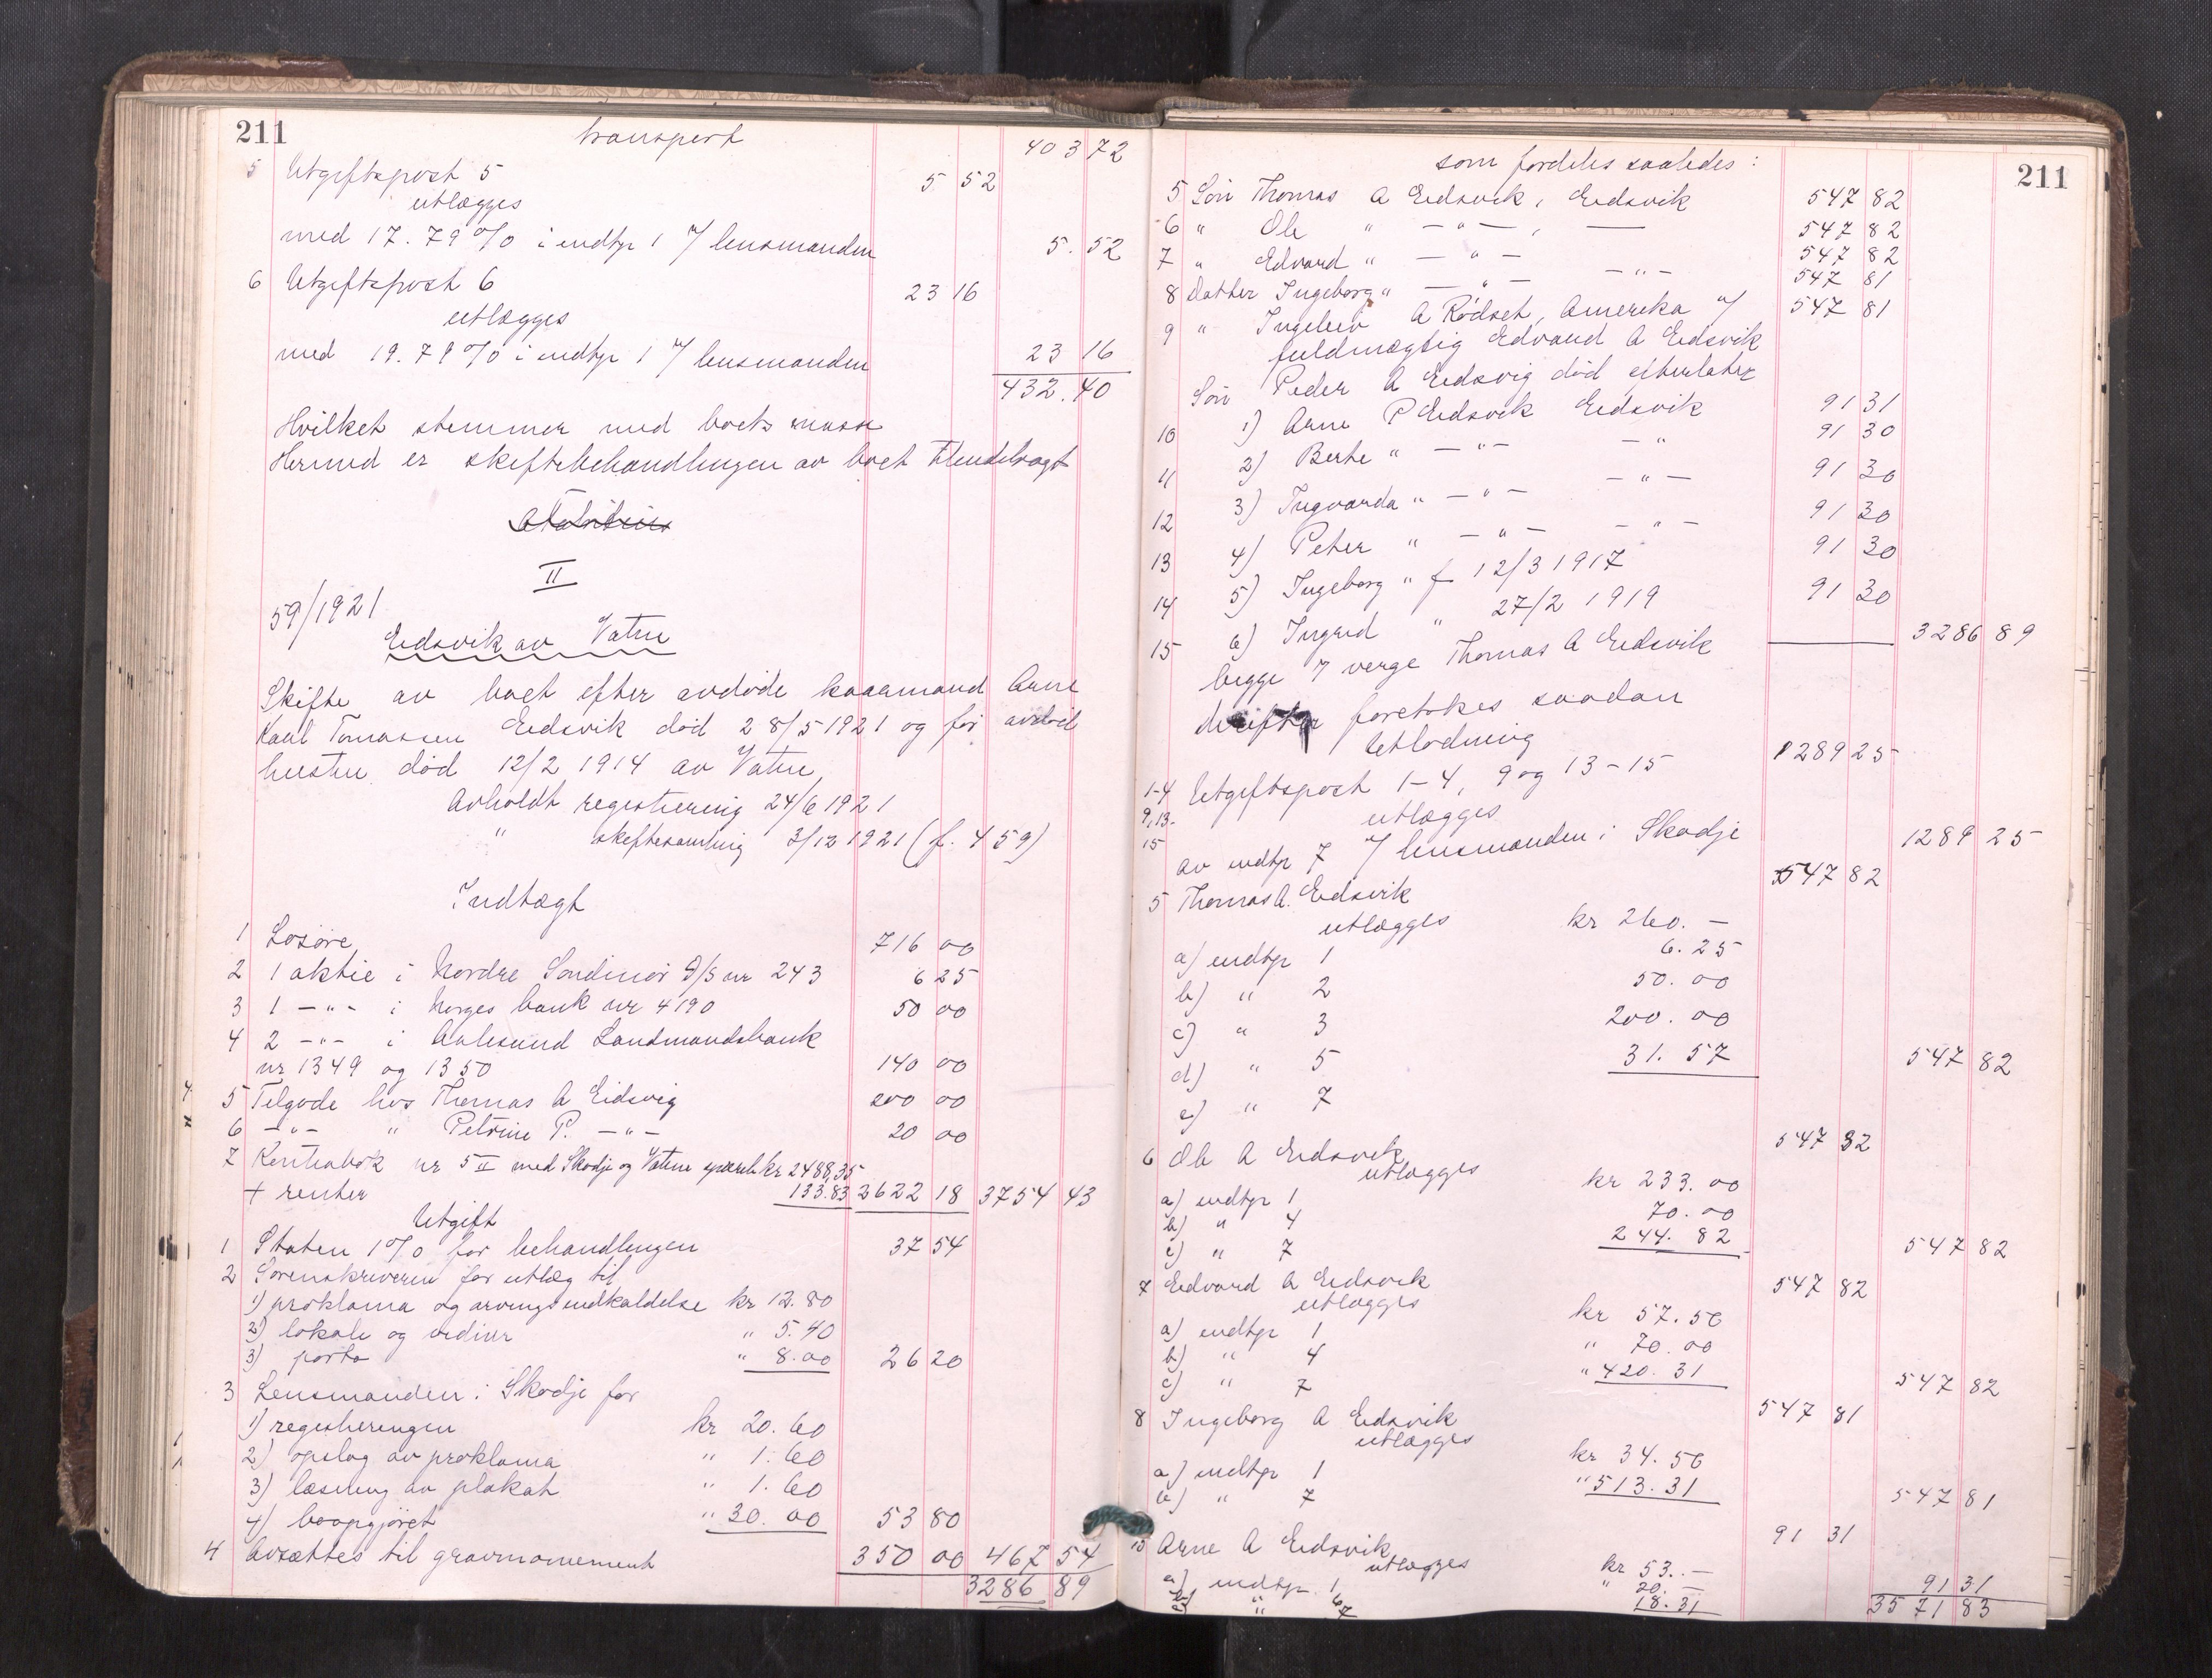 211
transport 403 72
5 Utgiftspost 5 5 52
utlægges
med 17.79 % i indtp 1 v/ lensmanden 5.52
6 Utgiftspost 6 23 16
utlægges
med 19.79 % i indtp 1 v/ lensmanden 23 16
432.40
Hvilket stemmer med boets masse
Hermed er skiftebehandlingen av boet tilendebragt
II
59/1921
Eidsvik av Vatne
Skifte av boet efter avdøde kaarmand Arne
Karl Tomassen Eidsvik død 28/5 1921 og før avdød
hustru død 12/2 1914 av Vatne
Avholdt registrering 24/6 1921
" skiftesamling 3/12 1921 (f. 459)
Indtægt
1 Løsøre 716 00
2 1 aktie i Nordre Søndmør D/S nr 243 6 25
3 1 -"- i Norges bank nr 4190 50 00
4 2 -"- i Aalesund Landmandsbank
nr 1349 og 1350 140 00
5 Tilgode hos Thomas A Eidsvig 200 00
6 -"- " Petrine P. -"- 20 00
7 Kontrabok nr 5 II med Skodje og Vatne spareb kr 2488,35
+ renter 133.83 2622 18 3754 43
Utgift
1 Staten 1 % for behandlingen 37 54
2 Sorenskriveren for utlæg til
1) proklama og arvingsindkaldelse kr 12.80
2) lokale og vidner " 5.40
3) porto " 8.00 26 20
3 Lensmanden i Skodje for
1) registreringen kr 20.60
2) opslag av proklama " 1.60
3) læsning av plakat " 1.60
4) boopgjøret " 30.00 53 80
4 Avsættes til gravmonument 350 00 467 54
3286 89
211
som fordeles saaledes:
5 Søn Thomas A Eidsvik, Eidsvik 547 82
6 " Ole " -"-, — 547 82
7 " Edvard " -"- 547 82
8 Datter Ingeborg " -"- -"- 547 81
9 " Ingeleiv A Rødset, Amerika v/ 547 81
fuldmægtig Edvard A Eidsvik
Søn Peder A Eidsvig død efterlater
10 1) Arne P Eidsvik Eidsvik 91 31
11 2) Berte " -"- -" 91 30
12 3) Ingvarda " -"- -"- 91 30
13 4) Peter " -"- -"- 91 30
14 5) Ingeborg " f 12/3 1917 91 30
15 6) Ingard " 27/2 1919 91 30
begge v/ verge Thomas A Eidsvik 3286 89
derefter foretokes saadan
Utlodning
1-4 Utgiftspost 1-4, 9 og 13-15 1289 25
9,13- utlægges
15 av indtp 7 v/ lensmanden i Skodje 1289 25
5 Thomas A. Eidsvik 547 82
utlægges
a) indtp 1 kr 260. -
b) " 2 6.25
c) " 3 50.00
d) " 5 200.00
e) " 7 31.57 547 82
6 Ole A Eidsvik 547 82
utlægges
a) indtp 1 kr 233.00
b) " 4 70.00
c) " 7 244.82 547 82
7 Edvard A Eidsvik 547 82
utlægges
a) indtp 1 kr 57.50
b) " 4 " 70.00
c) " 7 " 420.31 547 82
8 Ingeborg A Eidsvik 547 81
utlægges
a) indtp 1 kr 34.50
b) " 7 " 513.31 547 81
10 Arne A Eidsvik 91 31
utlægges
a) indtp 1 kr 53. -
b) " 6 " 20. -
c) " 7 18.31 91 31
3571 83